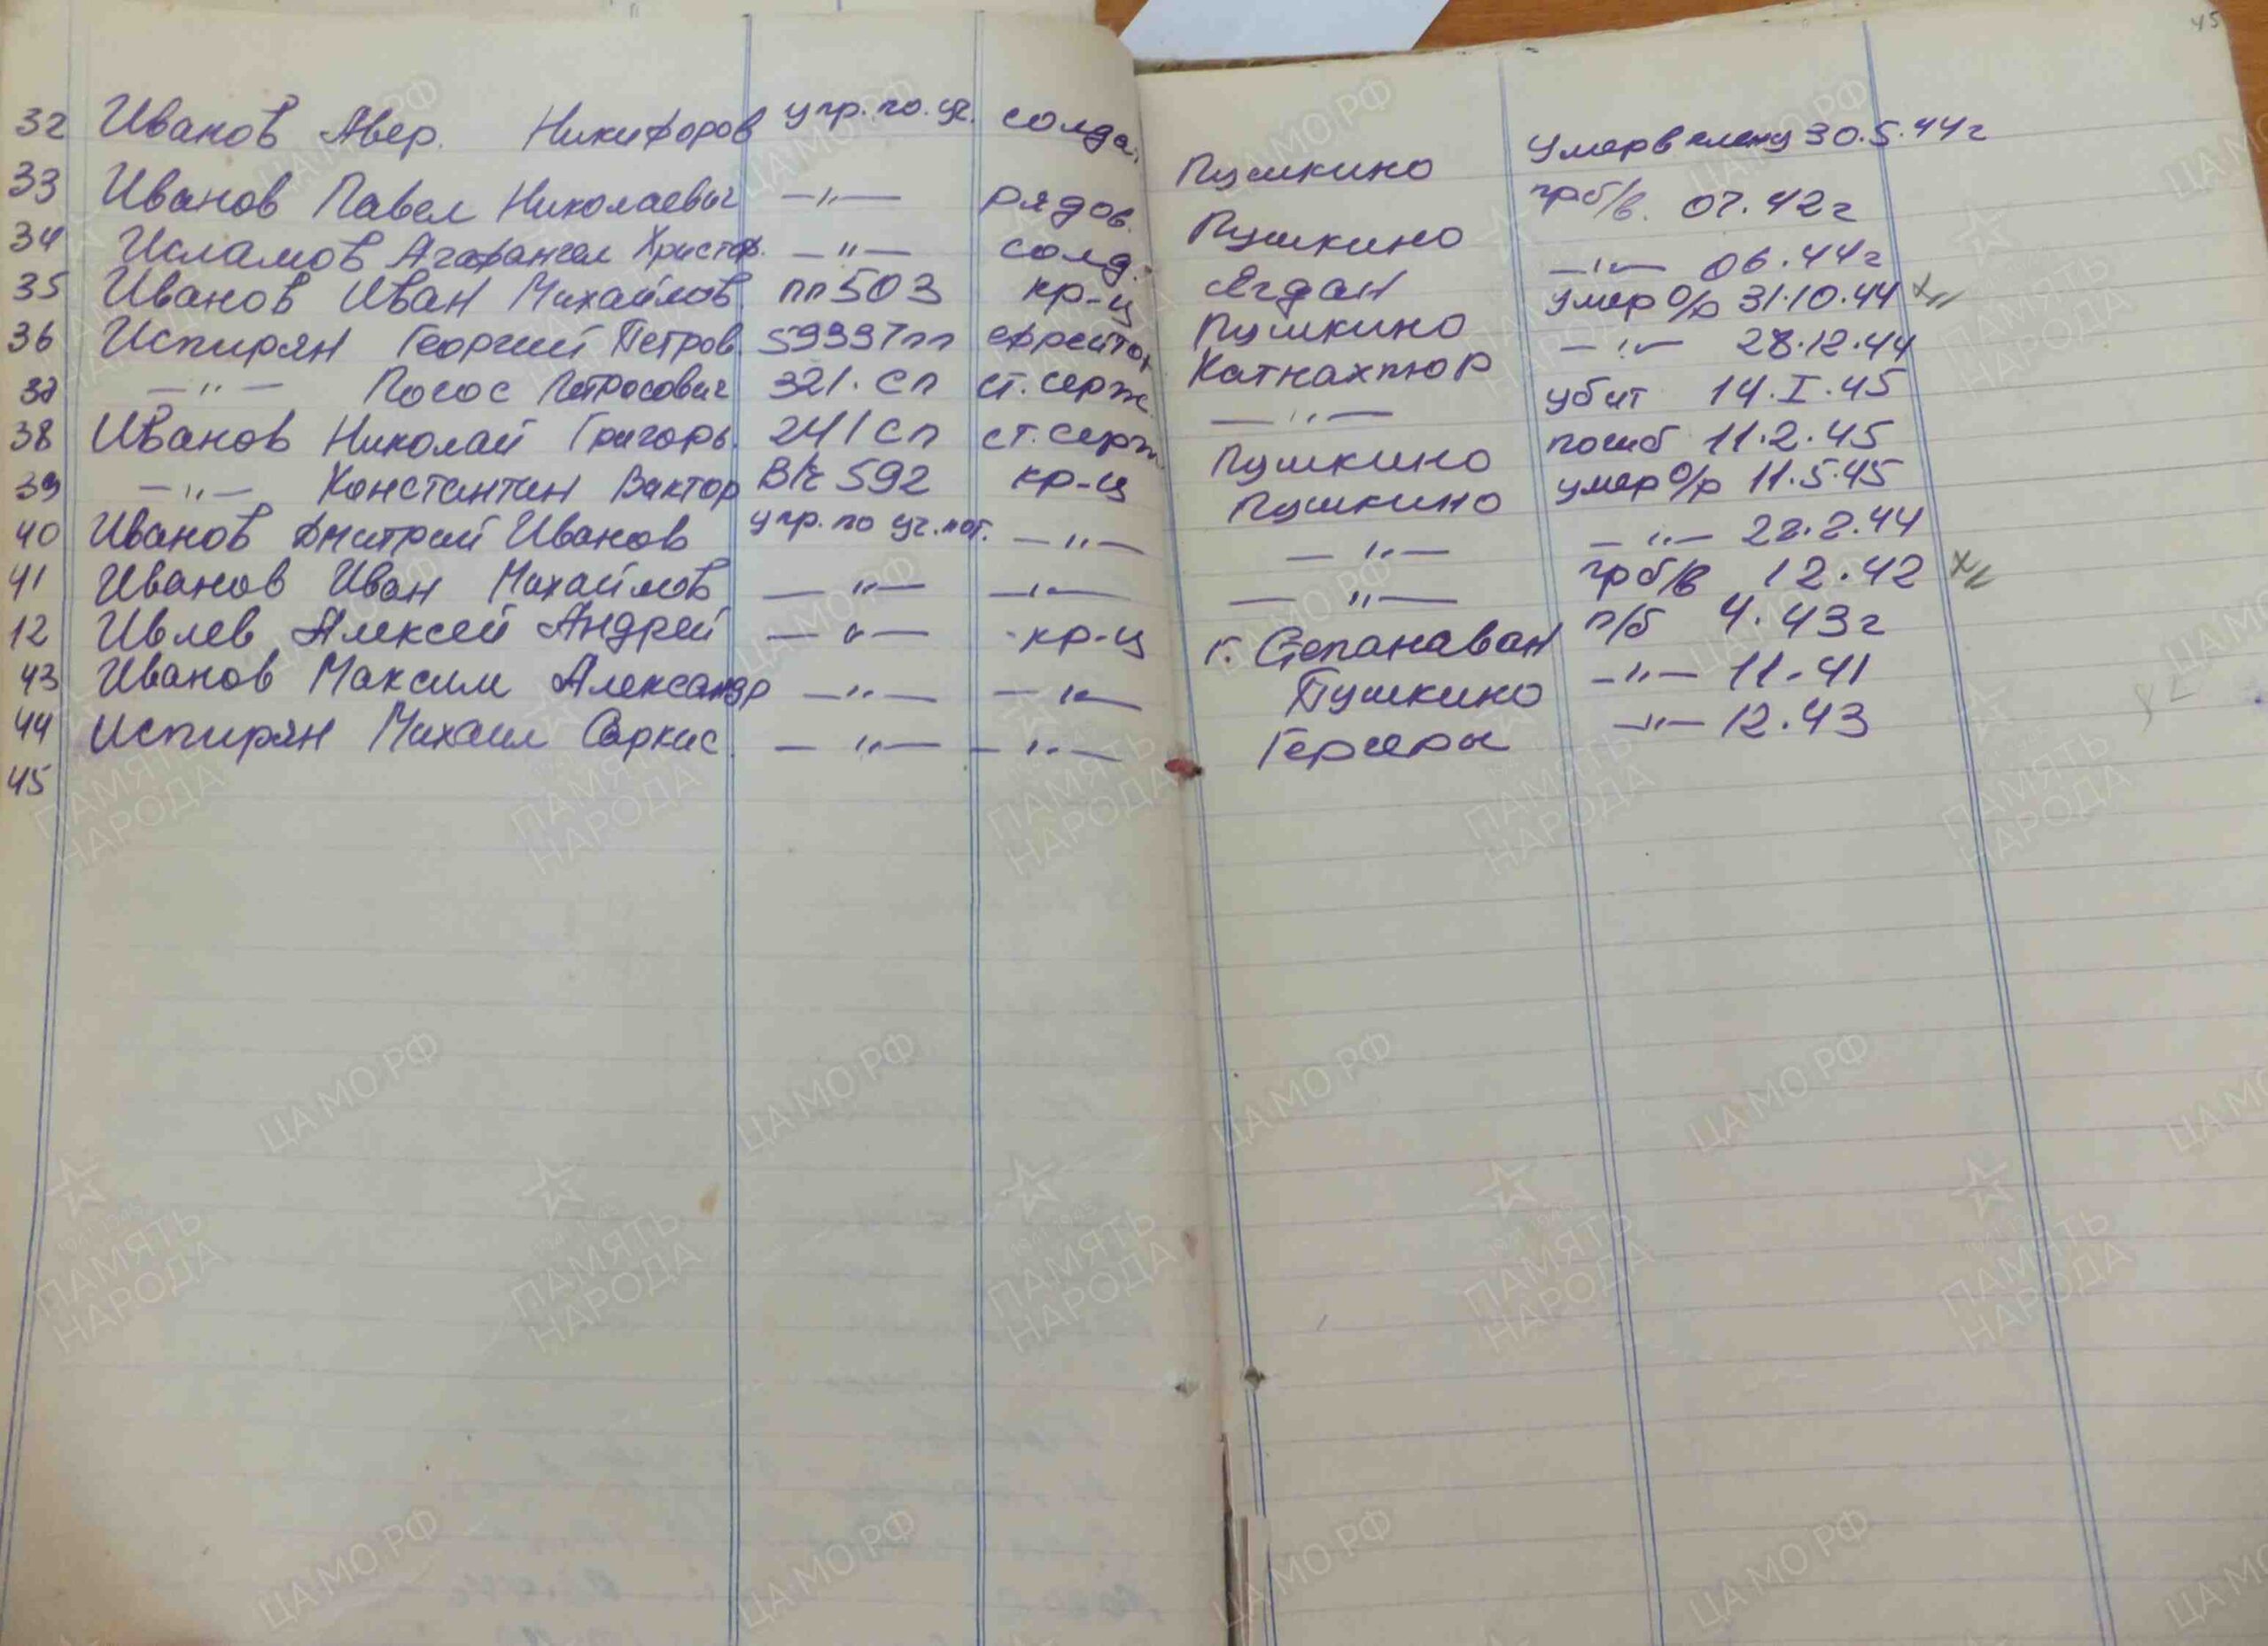 45
32 Иванов Авер. Никифоров упр. по. уг. солда. Пушкино Умер в плену 30.5.44г
33 Иванов Павел Николаевич —"— рядов. Пушкино пр б/в. 07.42г
34 Исламов Агафангел Христоф. —"— солд. Ягдан —"— 06.44г
35 Иванов Иван Михайлов. пп 503 кр-ц Пушкино умер о/р 31.10.44
36 Испирян Георгий Петров. 59997 пп ефрейтор Катнахпюр —"— 28.12.44
37 —"— Погос Петросович 321. сп ст. серж. —"— убит 14.I.45
38 Иванов Николай Григорь. 241 сп ст. серж Пушкино погиб 11.2.45
39 —"— Константин Виктор В/ч 592 кр-ц Пушкино умер о/р 11.5.45
40 Иванов Дмитрий Иванов упр. по уч. пот. —"— —"— —"— 22.2.44
41 Иванов Иван Михайлов —"— —"— —"— пр б/в 12.42
12 Ивлев Алексей Андрей —"— кр-ц г. Степанаван п/б 4.43г
43 Иванов Максим Александр —"— —"— Пушкино —"— 11.41
44 Испирян Михаил Саркис. —"— —"— Гергеры —"— 12.43
45